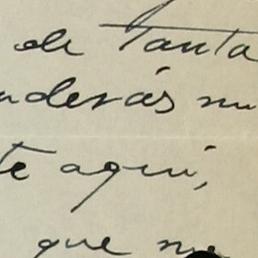 de tanta
nderás mu
te aquí,
que me